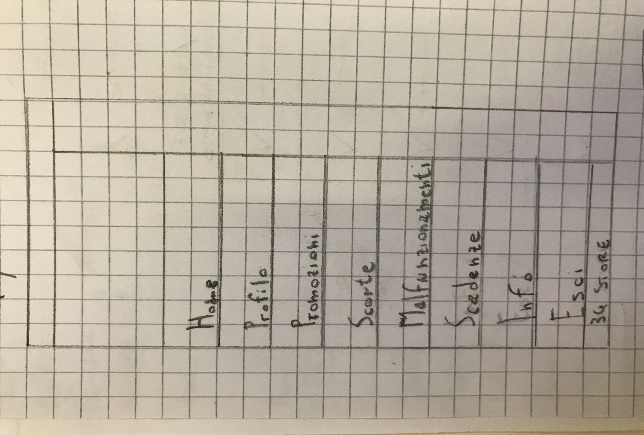 Home
Profilo
Promozioni
Scorte
Malfunzionamenti
Scadenze
Info
Esci
34 STORE